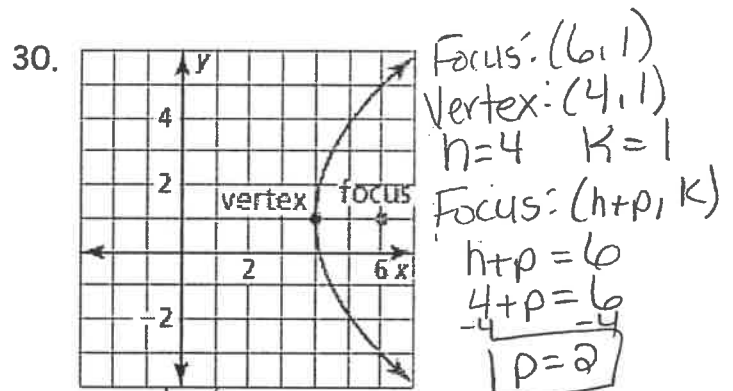 30.
y
4
2
vertex
focus
2
6 x
-2
Focus: (6, 1)
Vertex: (4, 1)
h=4 K=1
Focus: (h+p, K)
h+p=6
4+p=6
-4 -4
p=2